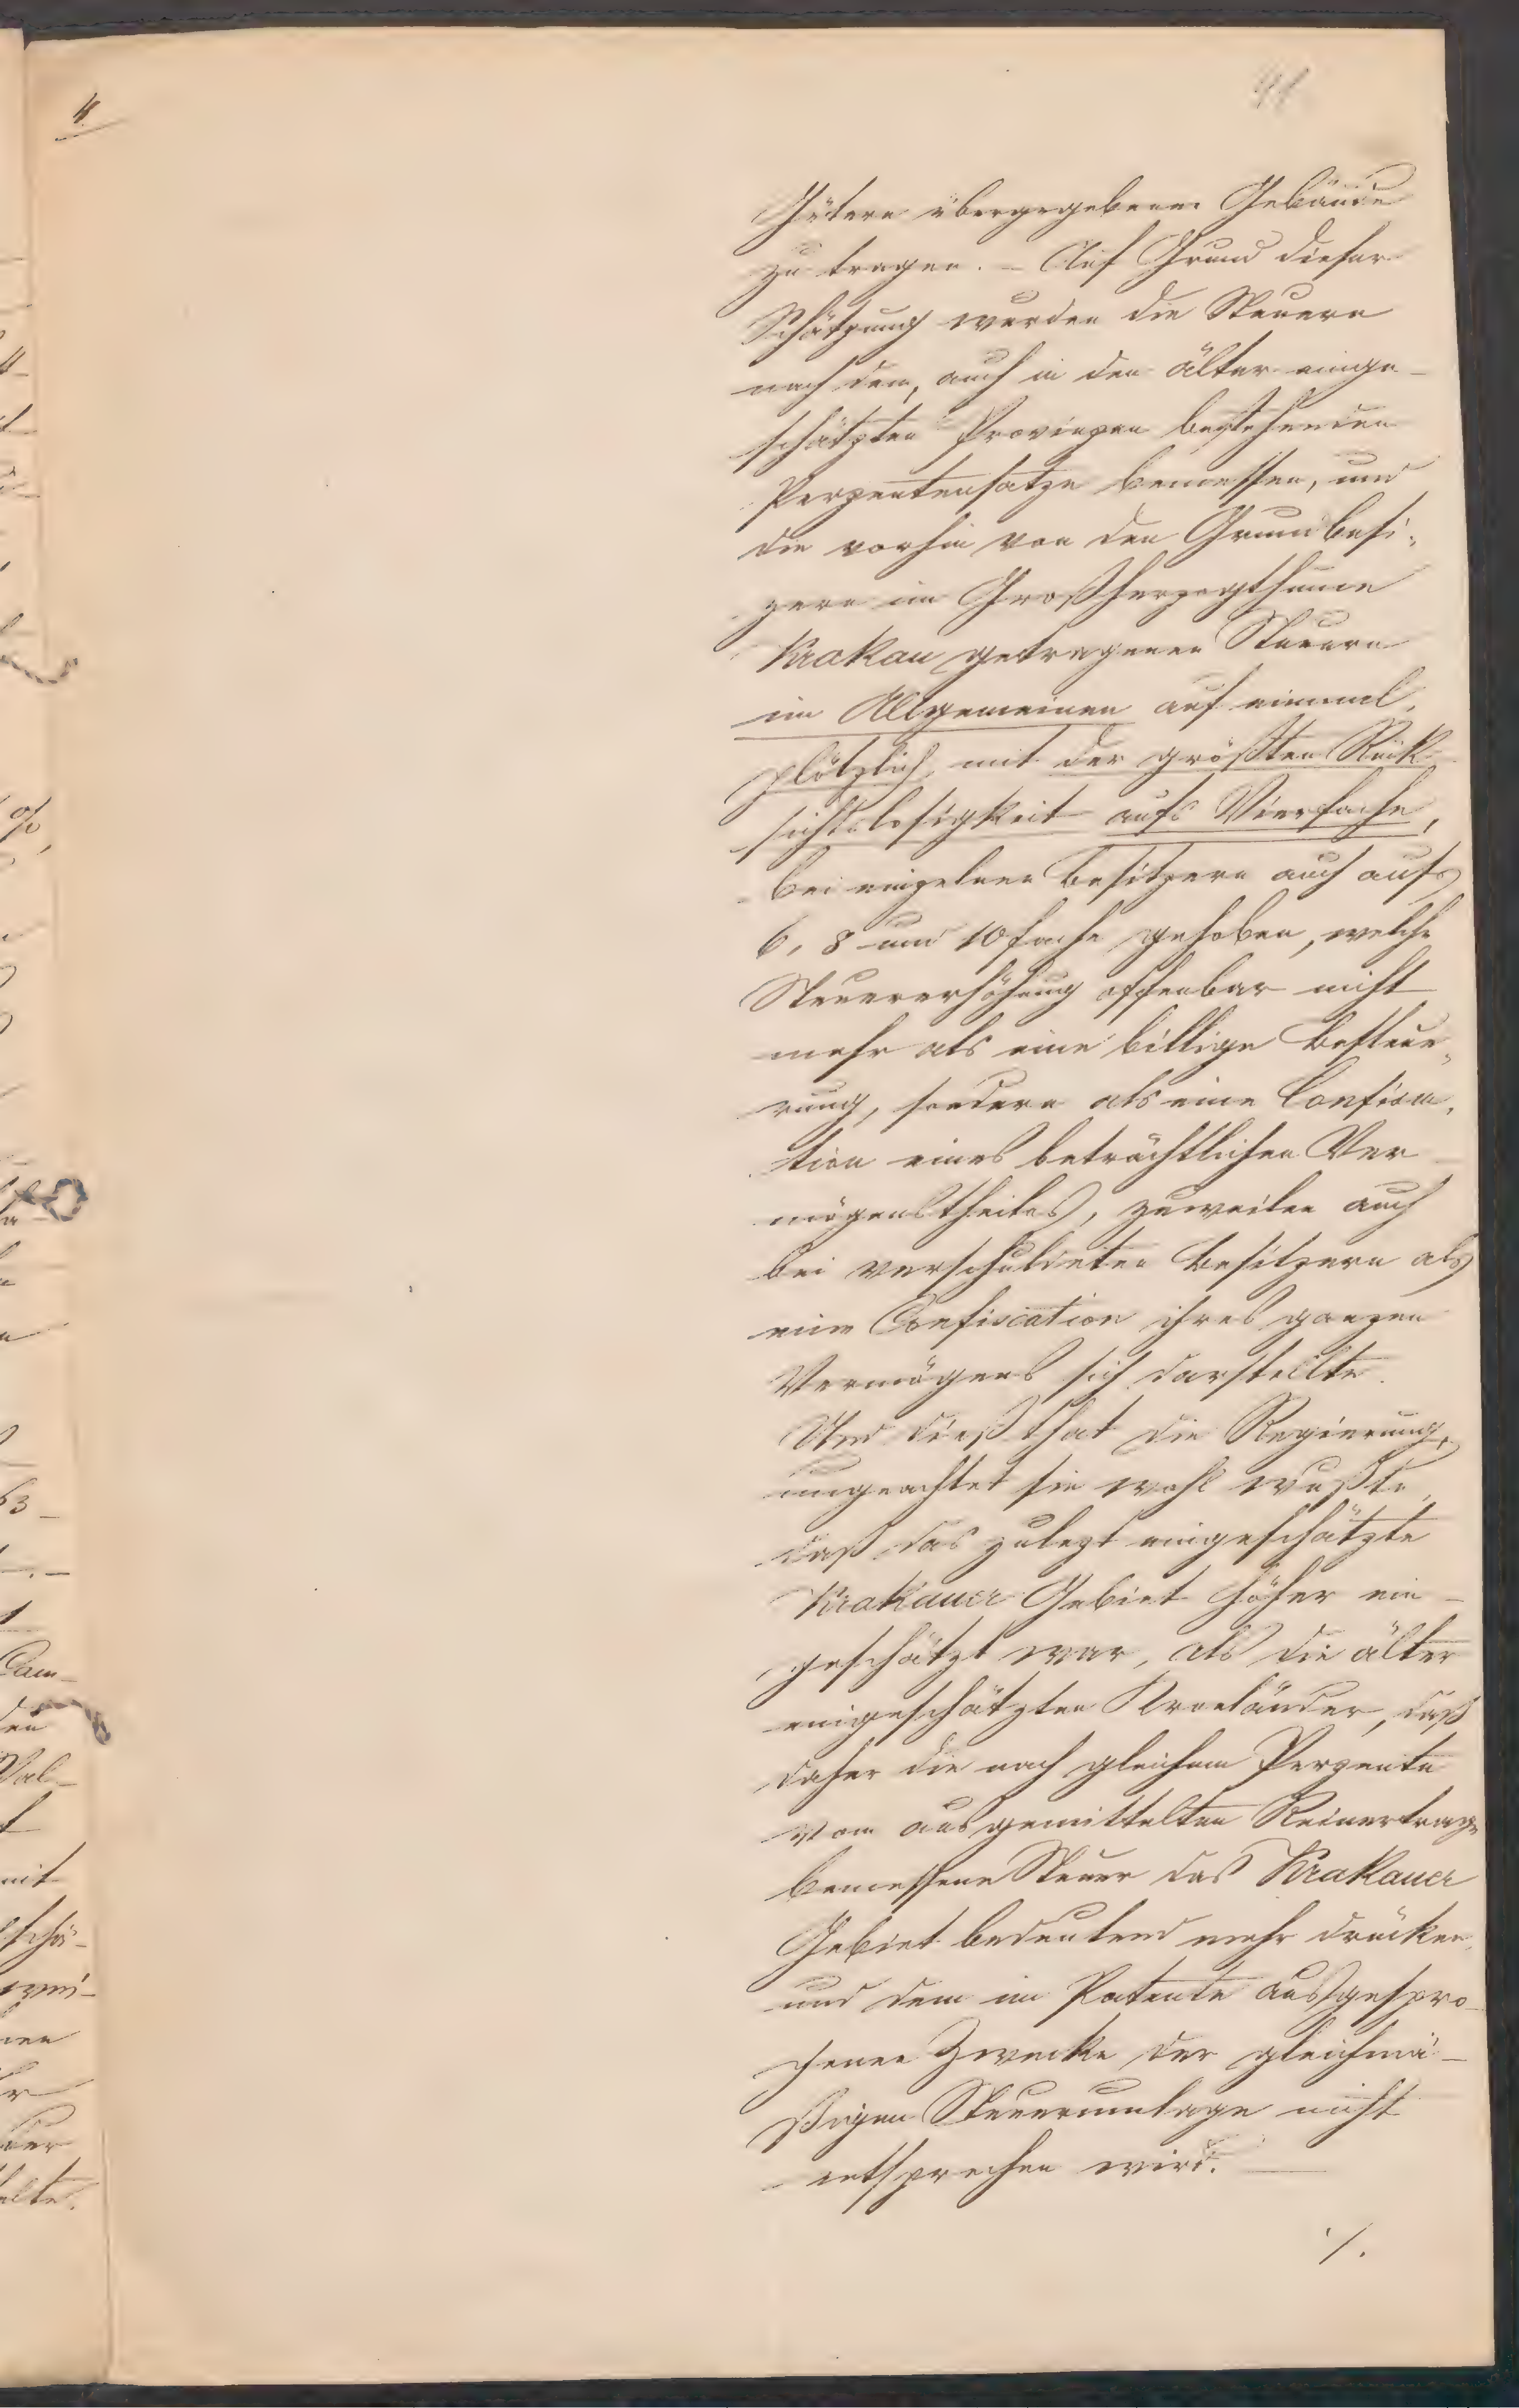 41
Gütern übergegebenen Gebäude
zu tragen. – Auf Grund dieser
Schätzung wurden die Steuern
nach dem, auch in den älter einge-
schätzten Provinzen bestehenden
Perzentensatze bemessen, und
die vorhin von den Grundbesi-
zern im Großherzogthume
Krakau getragenen Steuern
im Allgemeinen auf einmal,
plötzlich, mit der größten Rük-
sichtslosigkeit aufs Vierfache,
bei einzelnen Besitzern auch aufs
6, 8 und 10 fache gehoben, welche
Steuererhöhung offenbar nicht
mehr als eine billige Besteue-
rung, sondern als eine Confisca-
tion eines beträchtlichen Ver-
mögenstheiles, zuweilen auch
bei verschuldeten Besitzern als
eine Confiscation ihres ganzen
Vermögens sich darstellte.
Und dieß that die Regierung,
ungeachtet sie wohl wußte,
daß das zulezt eingeschätzte
Krakauer Gebiet höher ein-
geschätzt war, als die älter
eingeschätzten Kronländer, daß
daher die nach gleichem Perzente
vom ausgemittelten Reinertrage
bemessene Steuer das Krakauer
Gebiet bedeutend mehr drücken,
und dem im Patente ausgespro-
chenen Zwecke der gleichmä-
ßigen Steuerumlage nicht
entsprechen wird. —
./.